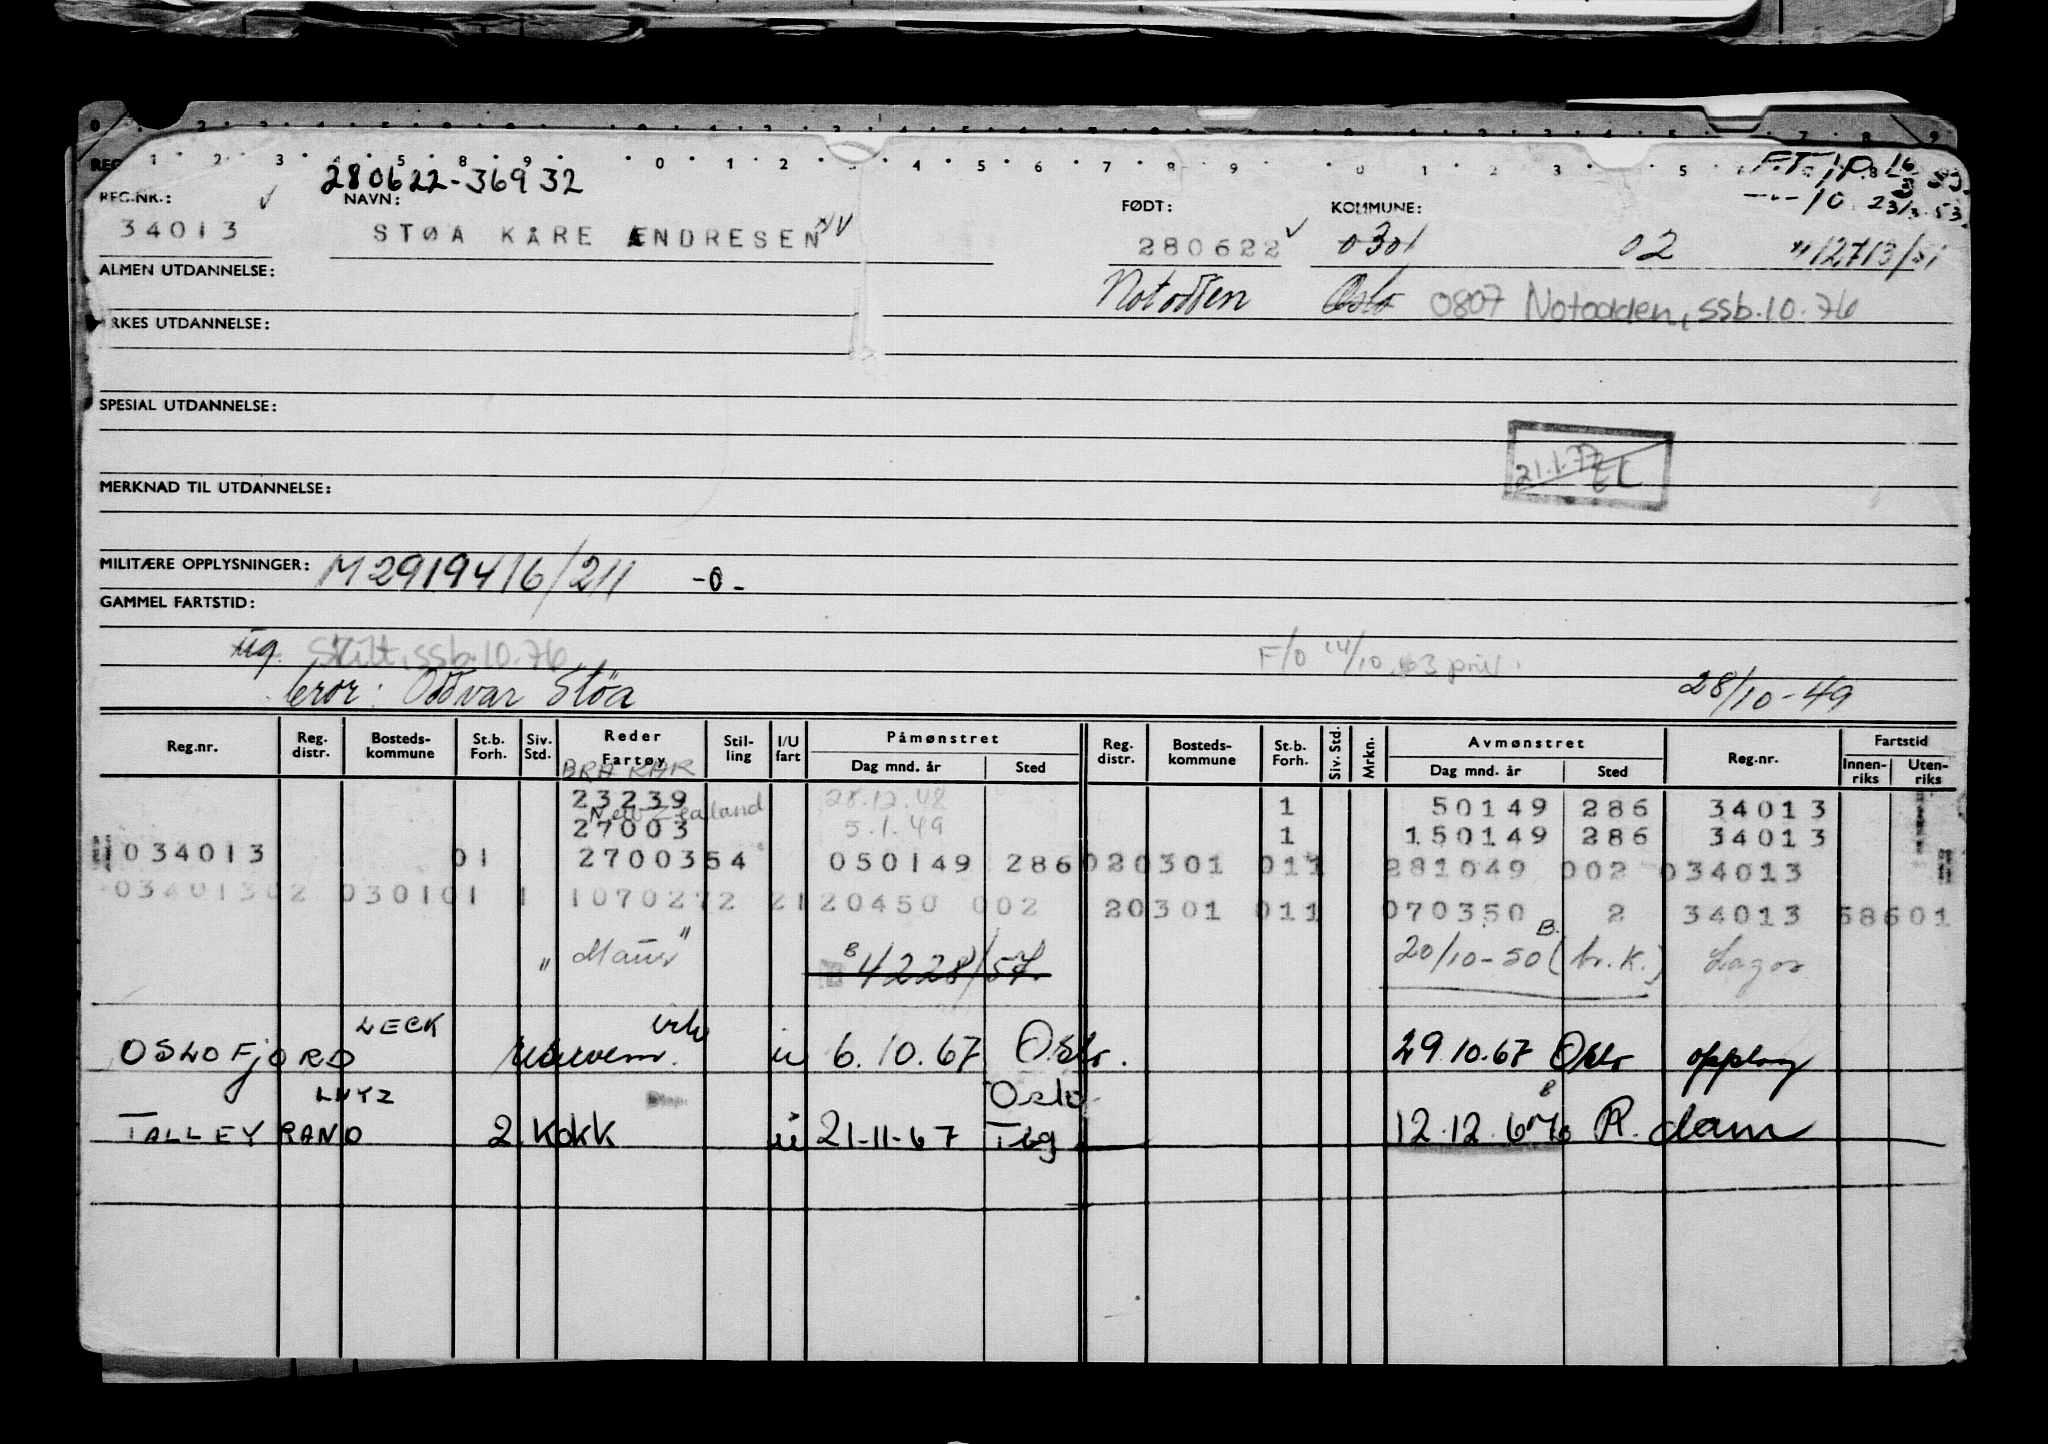 280622-36932
F.T.
REG.NR.: NAVN: FØDT: KOMMUNE:
34013 STØA KÅRE ENDRESEN 280622 0301 02
ALMEN UTDANNELSE: Notodden Oslo 0807 Notodden, ssb.10.76
YRKES UTDANNELSE:
SPESIAL UTDANNELSE:
21.1.77
MERKNAD TIL UTDANNELSE:
MILITÆRE OPPLYSNINGER: M2919416/211 -0-
GAMMEL FARTSTID:
ug. Skilt, ssb.10.76 F/O 14/10.63
bror: Oddvar Støa 28/10-49
Reg.nr. Reg. distr. Bosteds-kommune St.b. Forh. Siv. Std. Reder Fartøy Stil-ling I/U fart Påmønstret Dag mnd. år Sted Reg. distr. Bosteds-kommune St.b. Forh. Siv. Std. Mrkn. Avmønstret Dag mnd. år Sted Reg.nr. Fartstid Innen-riks Uten-riks
BRA KAR
23239 28.12.48 1 50149 286 34013
New Zealand
27003 5.1.49 1 150149 286 34013
034013 01 2700354 050149 286 020301 011 281049 002 034013
03401302 030101 1 1070272 2120450 002 20301 011 070350 2 34013 58601
" 4228/57 20/10-50 (br.K.) Lagos
LECK
OSLOFJORD u 6.10.67 Oslo. 29.10.67 Oslo opplag
LUTZ Oslo
TALLEYRAND 2 Kokk u 21-11-67 Tbg 12.12.67 R.dam